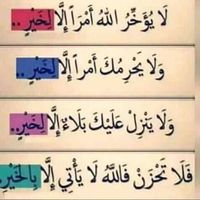 لَا يُؤَخِّرُ اللهُ أَمْرَاً إِلَّا لِخَيْرٍ ..
وَلَا يَحْرِمُكَ أَمْراً إِلَّا لِخَيْرٍ ..
وَلَا يَنْزِلُ عَلَيْكَ بَلَاءٌ إِلَّا لِخَيْرٍ ..
فَلَا تَحْزَنْ فَاللهُ لَا يَأْتِي إِلَّا بِالْخَيْرِ.